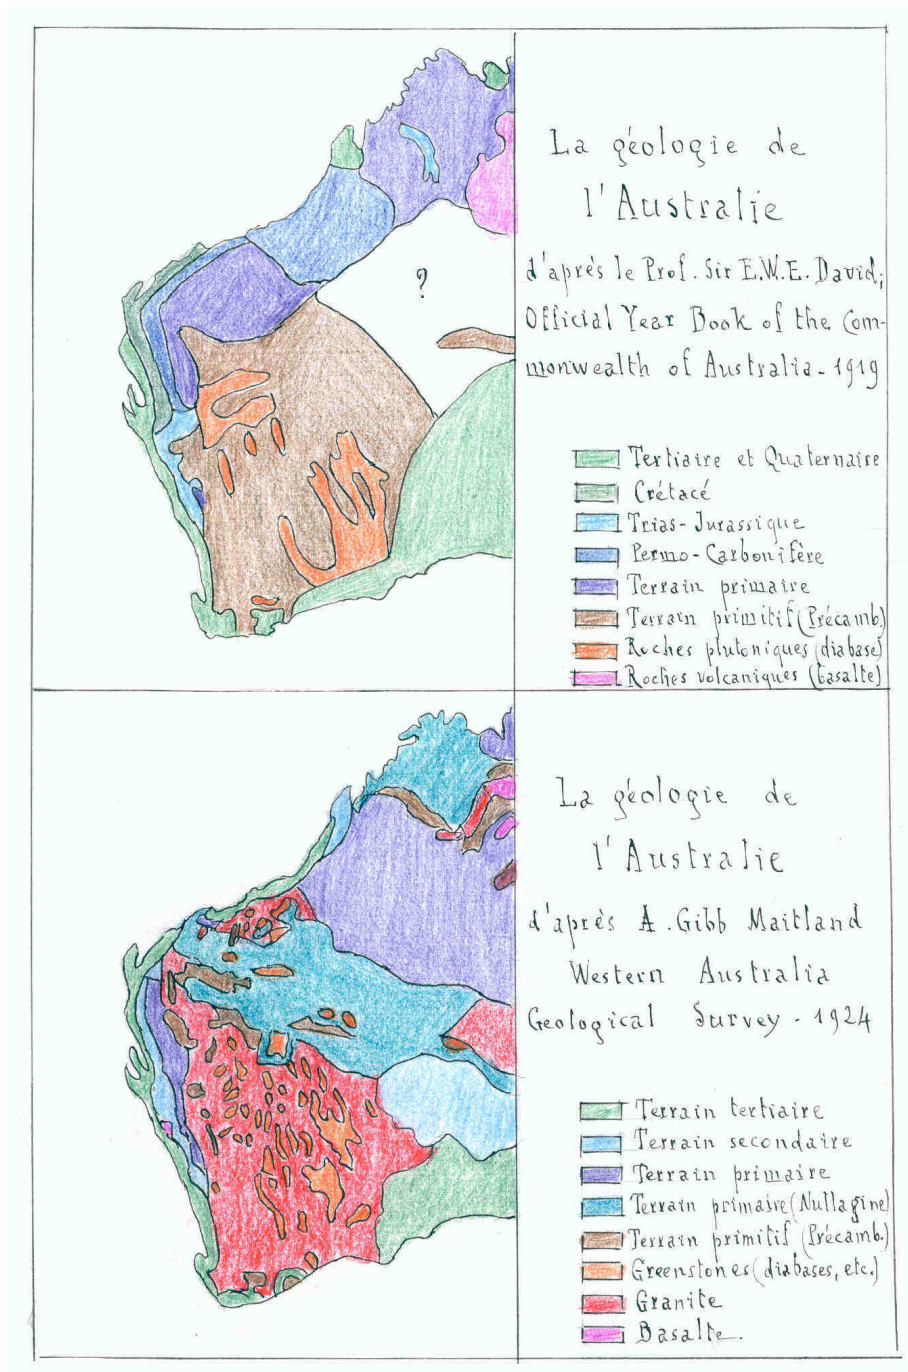 La géologie de
l'Australie
d'après le Prof. Sir E.W.E. David;
Official Year Book of the Com-
monwealth of Australia - 1919
?
Tertiaire et Quaternaire
Crétacé
Trias-Jurassique
Permo-Carbonifère
Terrain primaire
Terrain primitif (Précamb.)
Roches plutoniques (diabase)
Roches volcaniques (basalte)
La géologie de
l'Australie
d'après A. Gibb Maitland
Western Australia
Geological Survey - 1924
Terrain tertiaire
Terrain secondaire
Terrain primaire
Terrain primaire (Nullagine)
Terrain primitif (Précamb.)
Greenstones (diabases, etc.)
Granite
Basalte.